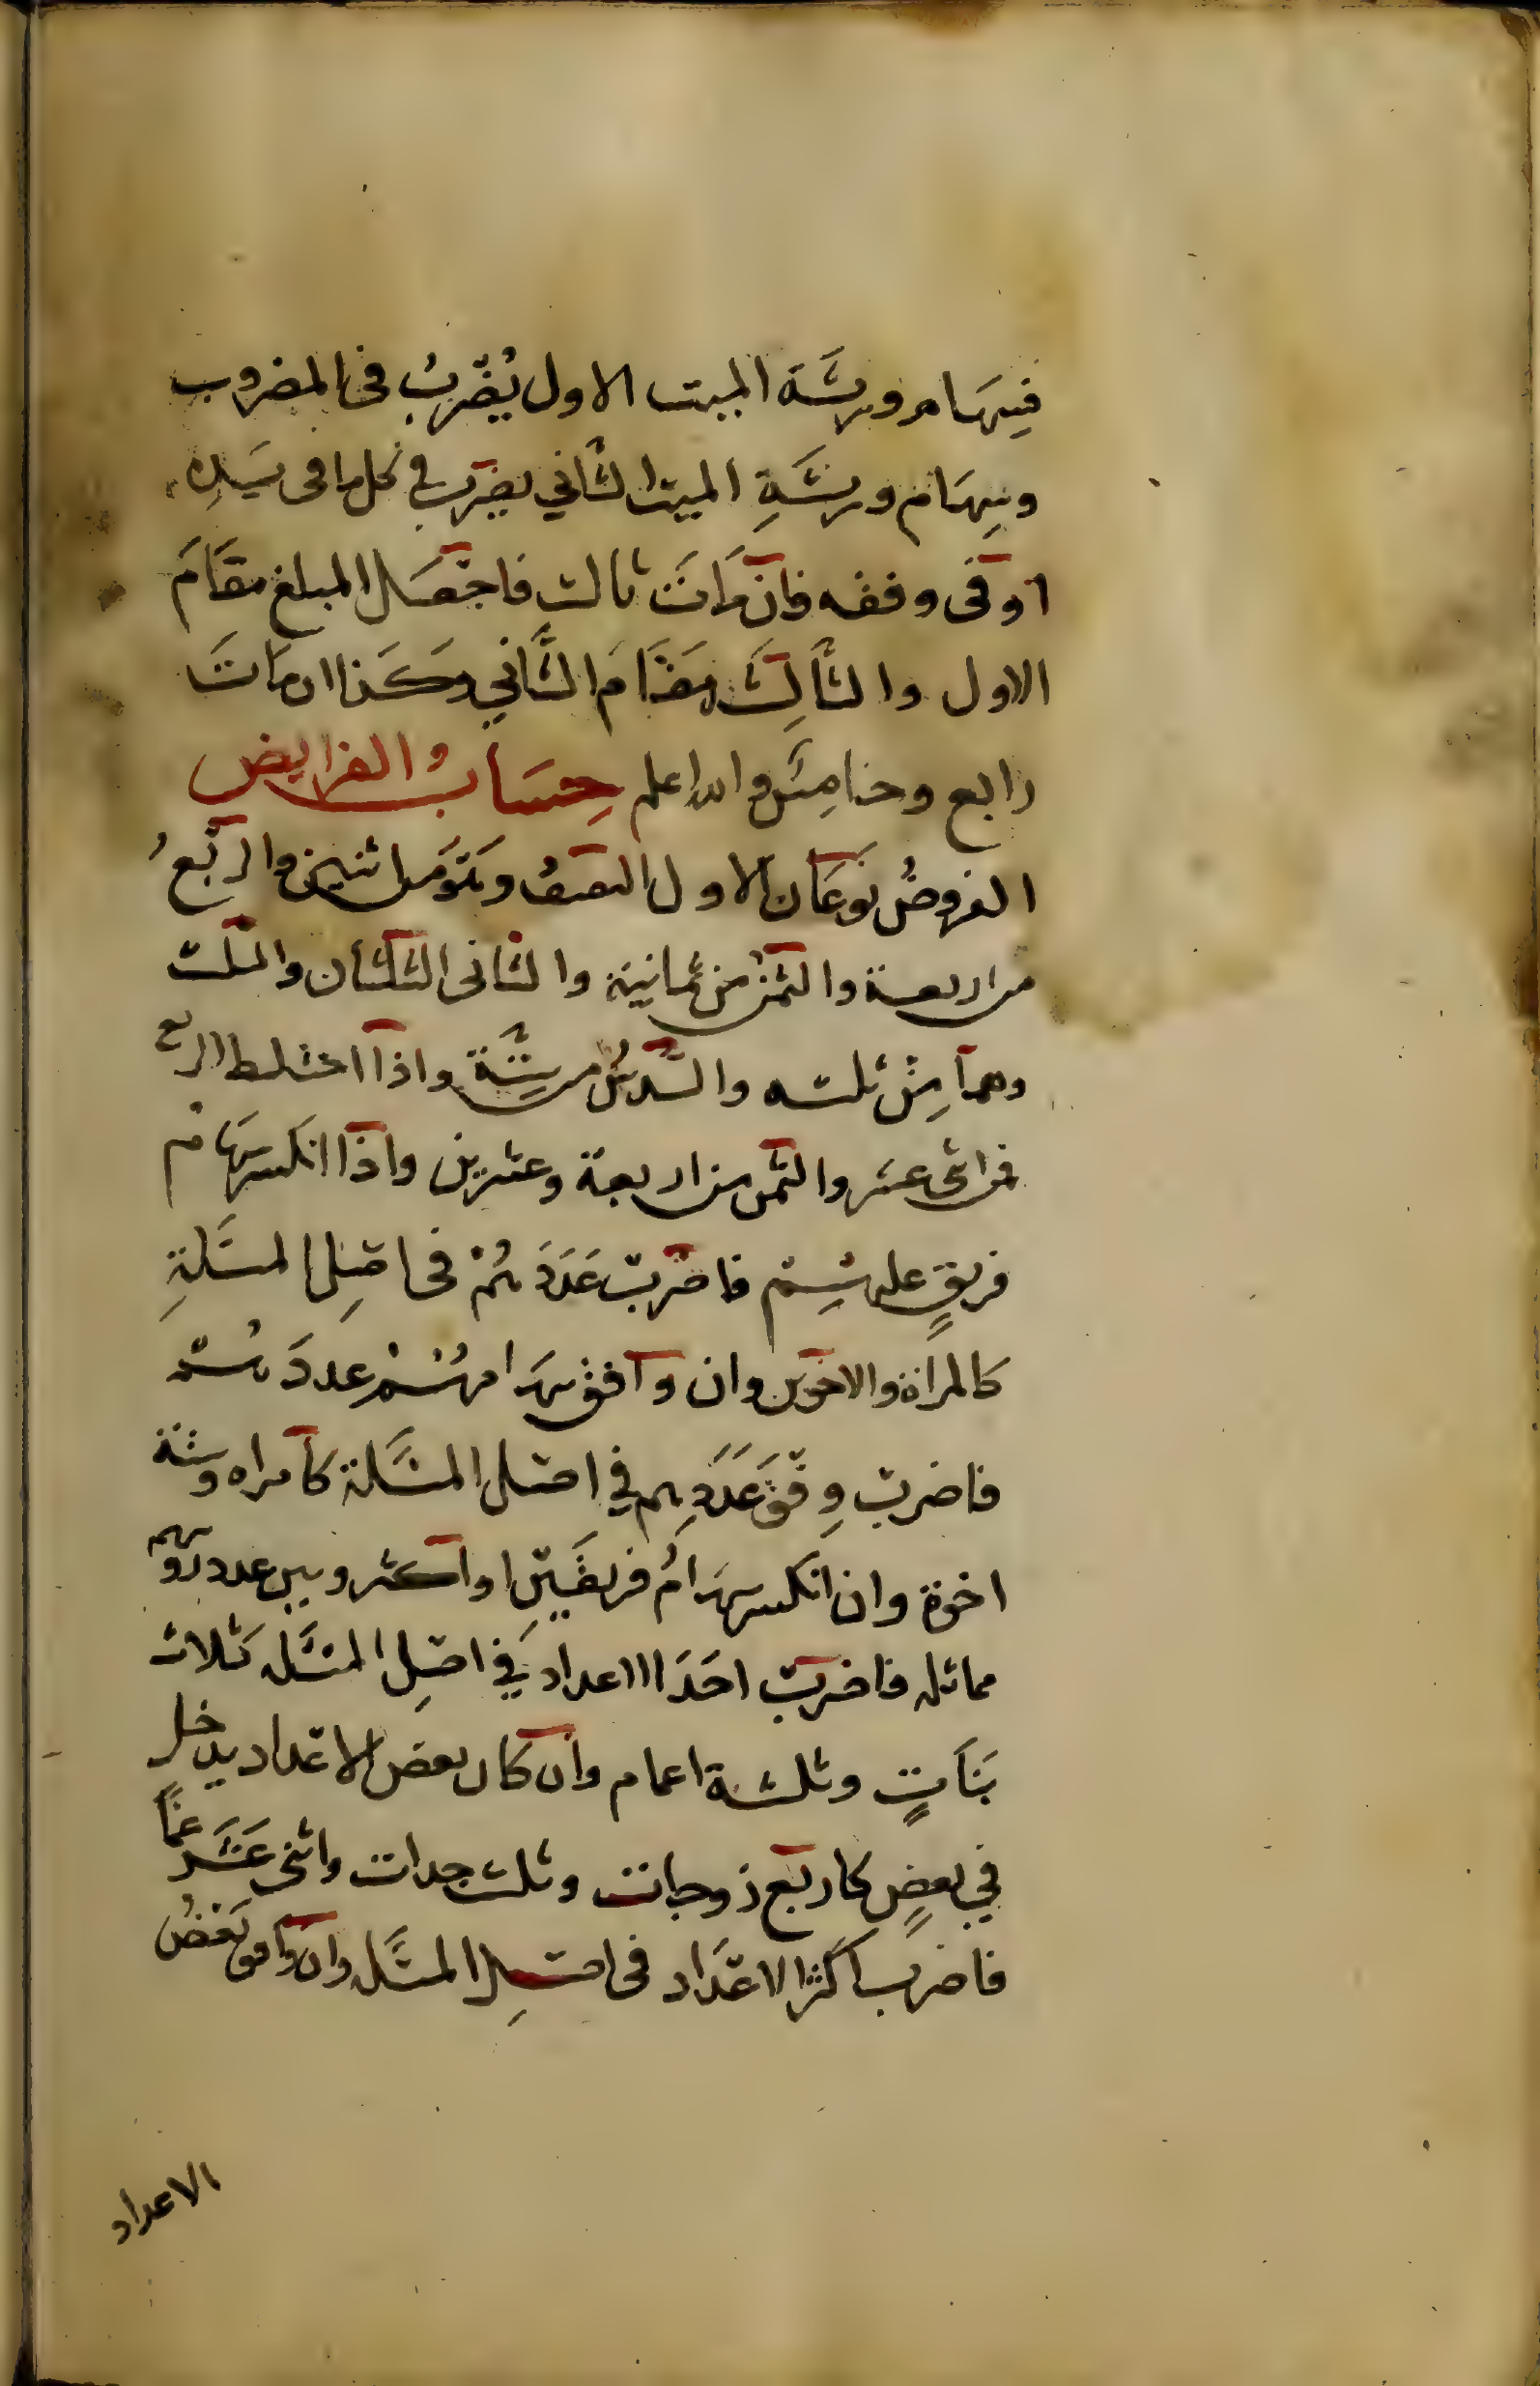 فسِهَام ورثَة الميت الاول يُضْربُ فى المضروب
وسِهَام ورثَةِ الميت الثاني يضرب في كل ما فى يَدِه
او فى وفقه فان مَاتَ ثالث فاجْعَل المبلغ مقَامَ
الاول والثالِثَ مَقَامَ الثَّاني وكَذا ان مَاتَ
رابع وخامِسٌ والله اعلم حِسَابُ الفرايض
الفروضُ نوعَان الاول النصفُ وهَوَ من اثنين والربْعُ
من اربعة والثمن من ثمانية والثانى الثلثان والثلث
وهما مِنْ ثلثه والسُّدسُ من سِتَّة واذا اختلط الربع
فمن اثنى عشر والثمن من اربعة وعشرين واذا انكسر سهَام
فريقٍ عليهِم فاضربْ عَدَدَهُمْ فى اصْلِ المسَئلةِ
كالمراة والاخوين وان وافق سهَامهُمْ عددَهُم
فاضربْ وِفْقَ عَدَدِهم في اصْل المسَئلة كامراه وستة
اخوة وان انكسر سهَامُ فريقَيْنِ او اكثر وبين عدد روسهم
مماثله فاضربْ احَدَ الاعداد في اصْلِ المسَئله كثلاث
بَنَاتٍ وثلثة اعمام وان كان بعض الاعْداد يدخل
في بعضٍ كاربَع زوجات وثلث جدات واثنى عَشَر عَمًّا
فاضرب اكثر الاعْدَاد فى اصْلِ المسَئله وان وافق بَعْضُ
الاعداد